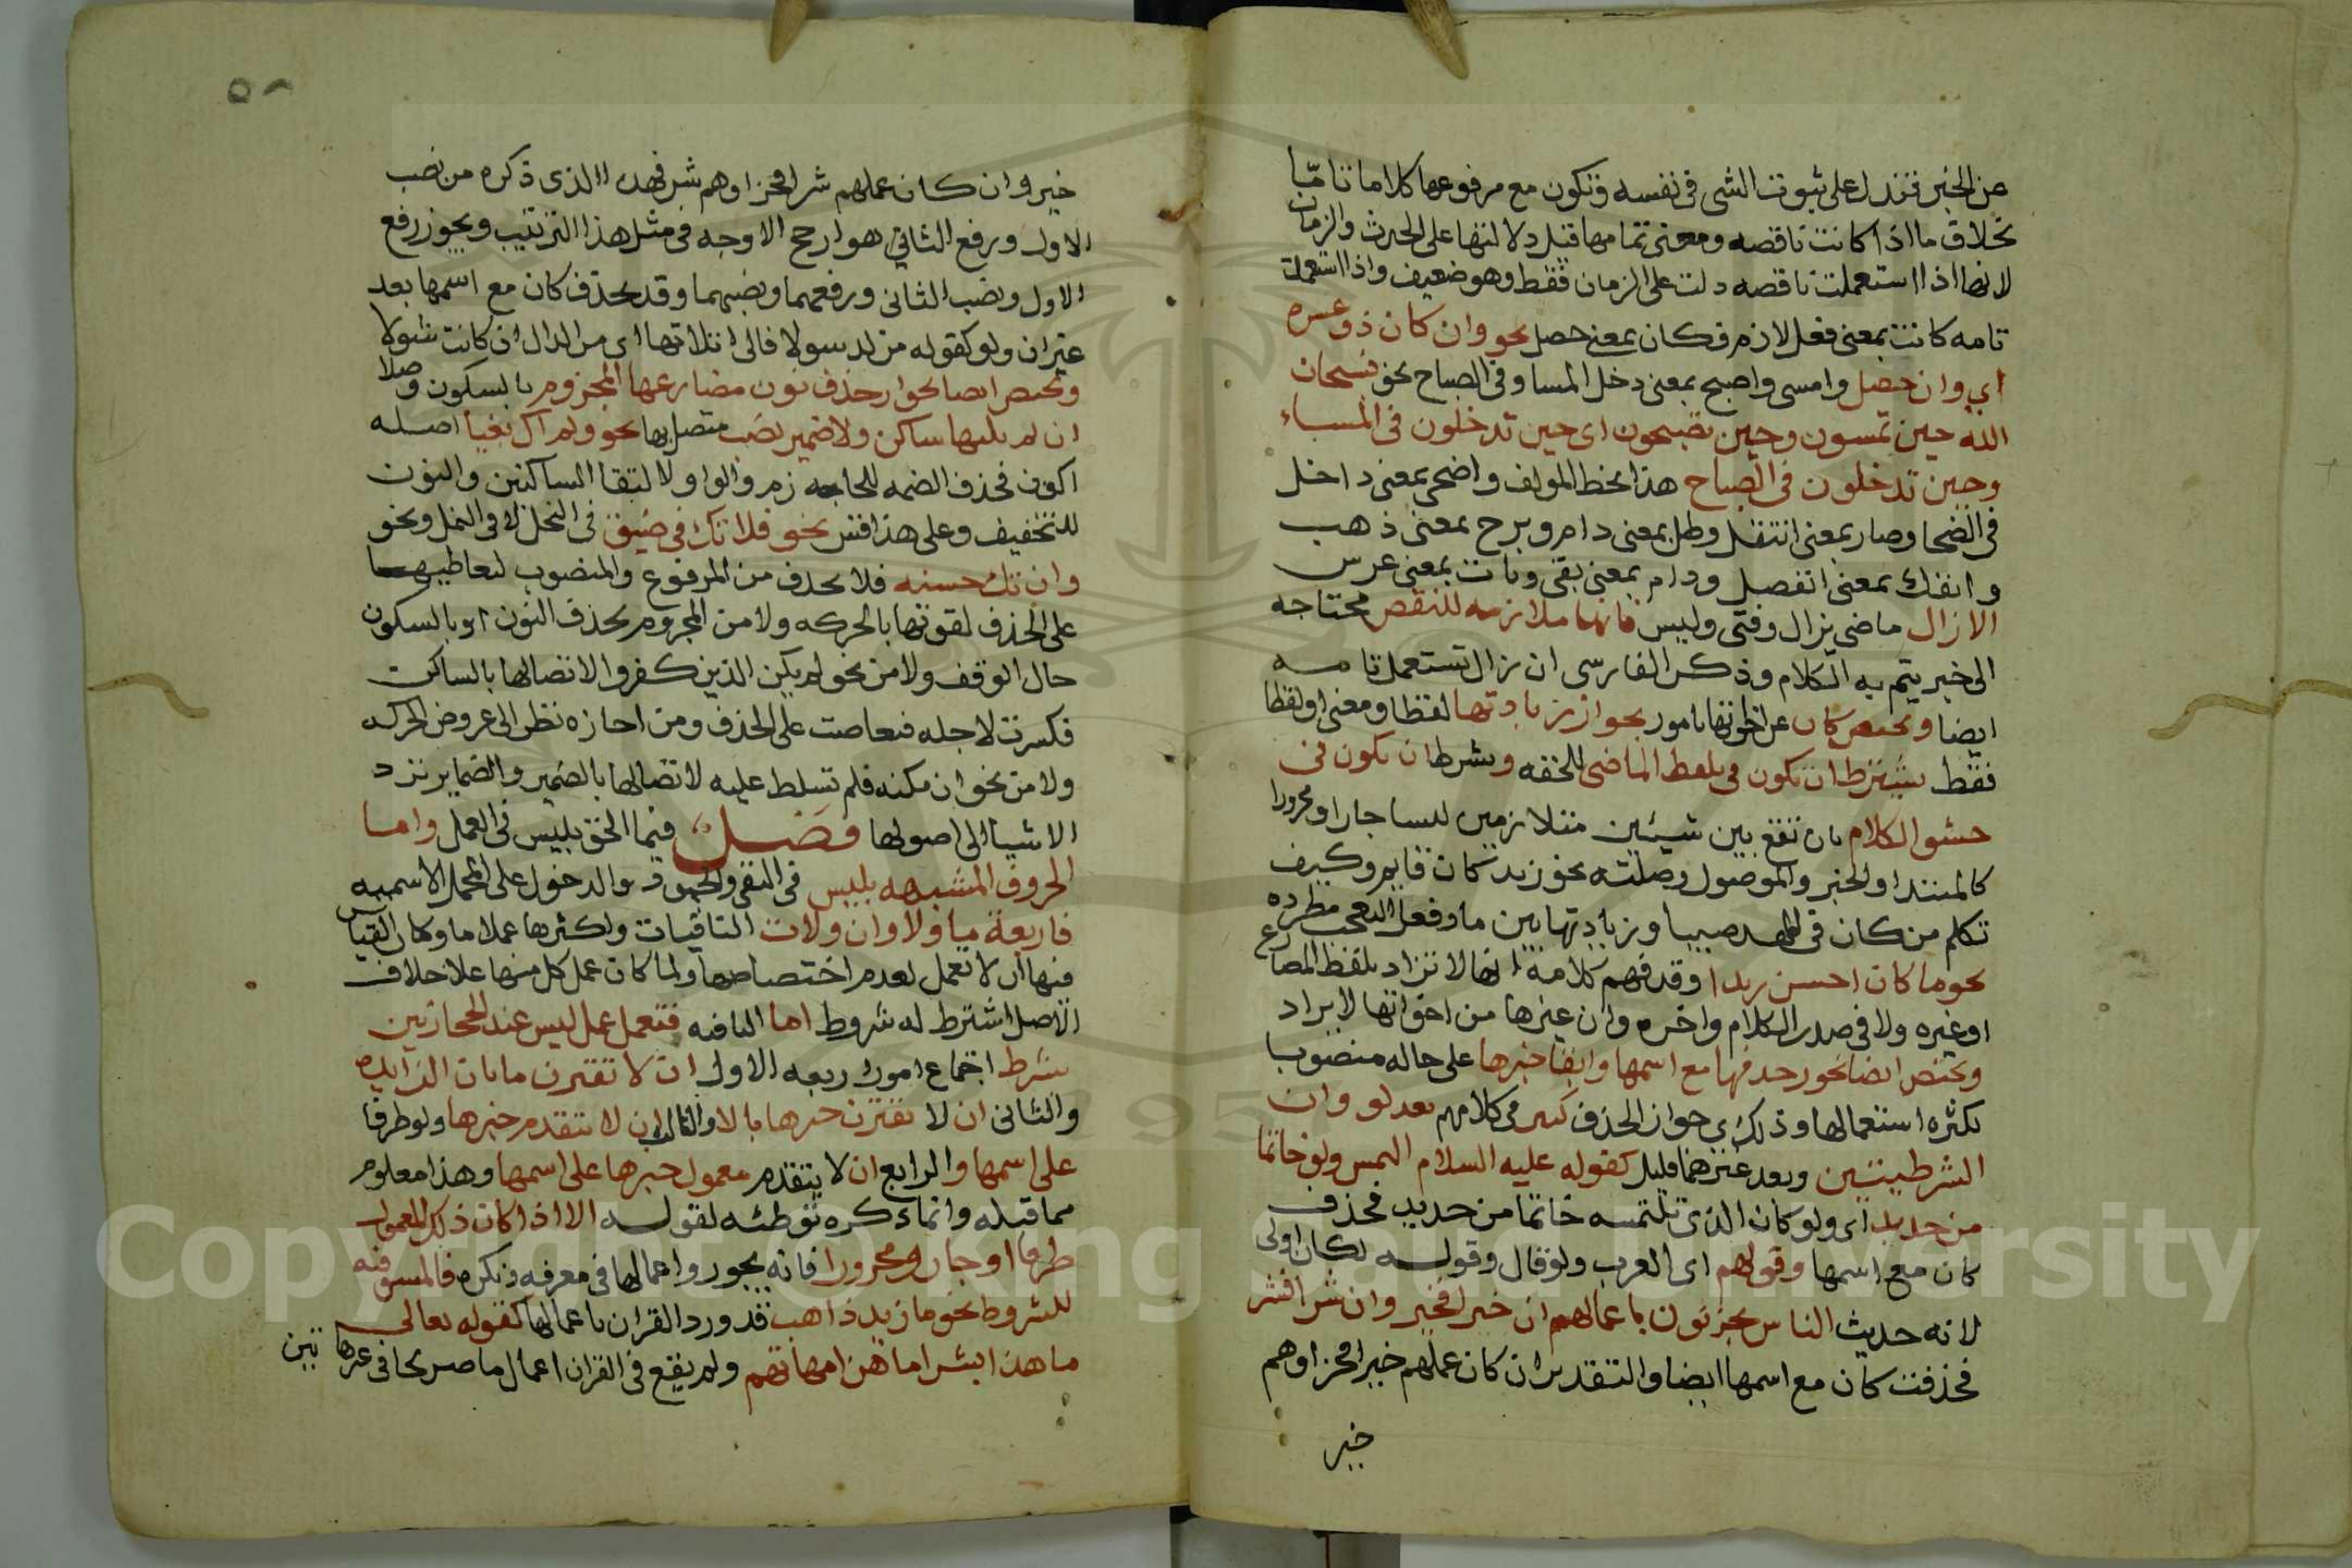 عن الخبر فتدل على ثبوت الشى فى نفسه وتكون مع مرفوعها كلاما تامّا
بخلاف ما اذا كانت ناقصه ومعنى تمامها قيل دلالتها على الحدث والزمان
لانها اذا استعملت ناقصه دلت على الزمان فقط وهو ضعيف واذا استعملت
تامه كانت بمعنى فعل لازم فكان بمعنى حصل نحو وان كان ذو عسره
اي وان حصل وامسى واصبح بمعنى دخل المسا وفى الصباح نحو فسبحان
الله حين تمسون وحين تصبحون اى حين تدخلون فى المساء
وحين تدخلون فى الصباح هذا بخط المولف واضحى بمعنى داخل
فى الضحا وصار بمعنى انتقل وظل بمعنى دام وبرح بمعنى ذهب
وانفك بمعنى انفصل ودام بمعنى بقى وبات بمعنى عرس
الا زال ماضى يزال وفتى وليس فانها ملازمه للنقص محتاجه
الى خبر يتم به الكلام وذكر الفارسى ان زال تستعمل تامه
ايضا وتختص كان عن اخواتها بامور بجواز زيادتها لفظا ومعنى او لفظا
فقط بشرط ان تكون فى بلفظ الماضى للخفه وبشرط ان تكون فى
حشو الكلام بان تقع بين شيئين متلازمين ليسا جارا ومجرورا
كالمبتدا والخبر والموصول وصلته نحو زيد كان قايم وكيف
تكلم من كان فى المهد صبيا وزيادتها بين ما وفعل التعجب مطرده
نحو ما كان احسن زيدا وقد فهم كلامه انها لا تزاد بلفظ المضارع
او غيره ولا فى صدر الكلام واخره وان غيرها من اخواتها لا يزاد
وتختص ايضا بجوز حذفها مع اسمها وابقا خبرها على حاله منصوبا
لكثره استعمالها وذلك اى جواز الحذف كثير فى كلامهم بعد لو وان
الشرطيتين وبعد غيرهما قليل كقوله عليه السلام التمس ولو خاتما
من حديد اى ولو كان الذى تلتمسه خاتما من حديد فحذف
كان مع اسمها وقولهم اى العرب ولو قال وقوله لكان اولى
لانه حديث الناس مجزيون باعمالهم ان خيرا فخير وان شرا فشر
فحذفت كان مع اسمها ايضا والتقدير ان كان عملهم خيرا فجزاوهم
خير
٥٨
خير وان كان عملهم شرا فجزاوهم شر فهذا الذى ذكره من نصب
الاول ورفع الثانى هو ارجح الاوجه فى مثل هذا التركيب ويجوز رفع
الاول ونصب الثانى ورفعهما ونصبهما وقد تحذف كان مع اسمها بعد
غير ان ولو كقوله من لد شولا فالى اتلائها اى من لدن ان كانت شولا
وتختص ايضا بجواز حذف نون مضارعها المجزوم بالسكون وصلا
ان لم يلها ساكن ولا ضمير نصب متصل بها نحو ولم اك بغيا اصله
اكون فحذف الضمه للجازم والواو لالتقا الساكنين والنون
للتخفيف وعلى هذا فقس نحو فلا تك فى ضيق فى النحل لا فى النمل ونحو
وان تك حسنه فلا تحذف من المرفوع والمنصوب لتعاطيهما
على الحذف لقوتها بالحركه ولا من المجزوم بحذف النون او بالسكون
حال الوقف ولا من نحو لم يكن الذين كفروا لاتصالها بالساكن
فكسرت لاجله فتعاصت على الحذف ومن اجازه نظر الى عروض الحركه
ولا من نحو ان يكنه فلم تسلط عليه لاتصالها بالضمير والضماير ترد
الاشيا الى اصولها فصل فيما الحق بليس فى العمل واما
الحروف المشبهه بليس فى النفى والجمود والدخول على الجمل الاسميه
فاربعة ما ولا وان ولات النافيات واكثرها عملا ما وكان القياس
فيها ان لا تعمل لعدم اختصاصها ولما كان عمل كل منها على خلاف
الاصل اشترط له شروط اما النافيه فتعمل عمل ليس عند الحجازيين
بشرط اجتماع امور اربعه الاول ان لا تقترن ما بان الزايده
والثانى ان لا يقترن خبرها بالا والثالث ان لا يتقدم خبرها ولو ظرفا
على اسمها والرابع ان لا يتقدم معمول خبرها على اسمها وهذا معلوم
مما قبله وانما ذكره توطئه لقوله الا اذا كان ذلك المعمول
ظرفا او جارا ومجرورا فانه يجوز واعمالها فى معرفه ونكره فالمستوفيه
للشروط نحو ما زيد ذاهب قد ورد القران باعمالها كقوله تعالى
ما هذا بشرا ما هن امهاتهم ولم يقع فى القران اعمال ما صريحا فى غيرها تين